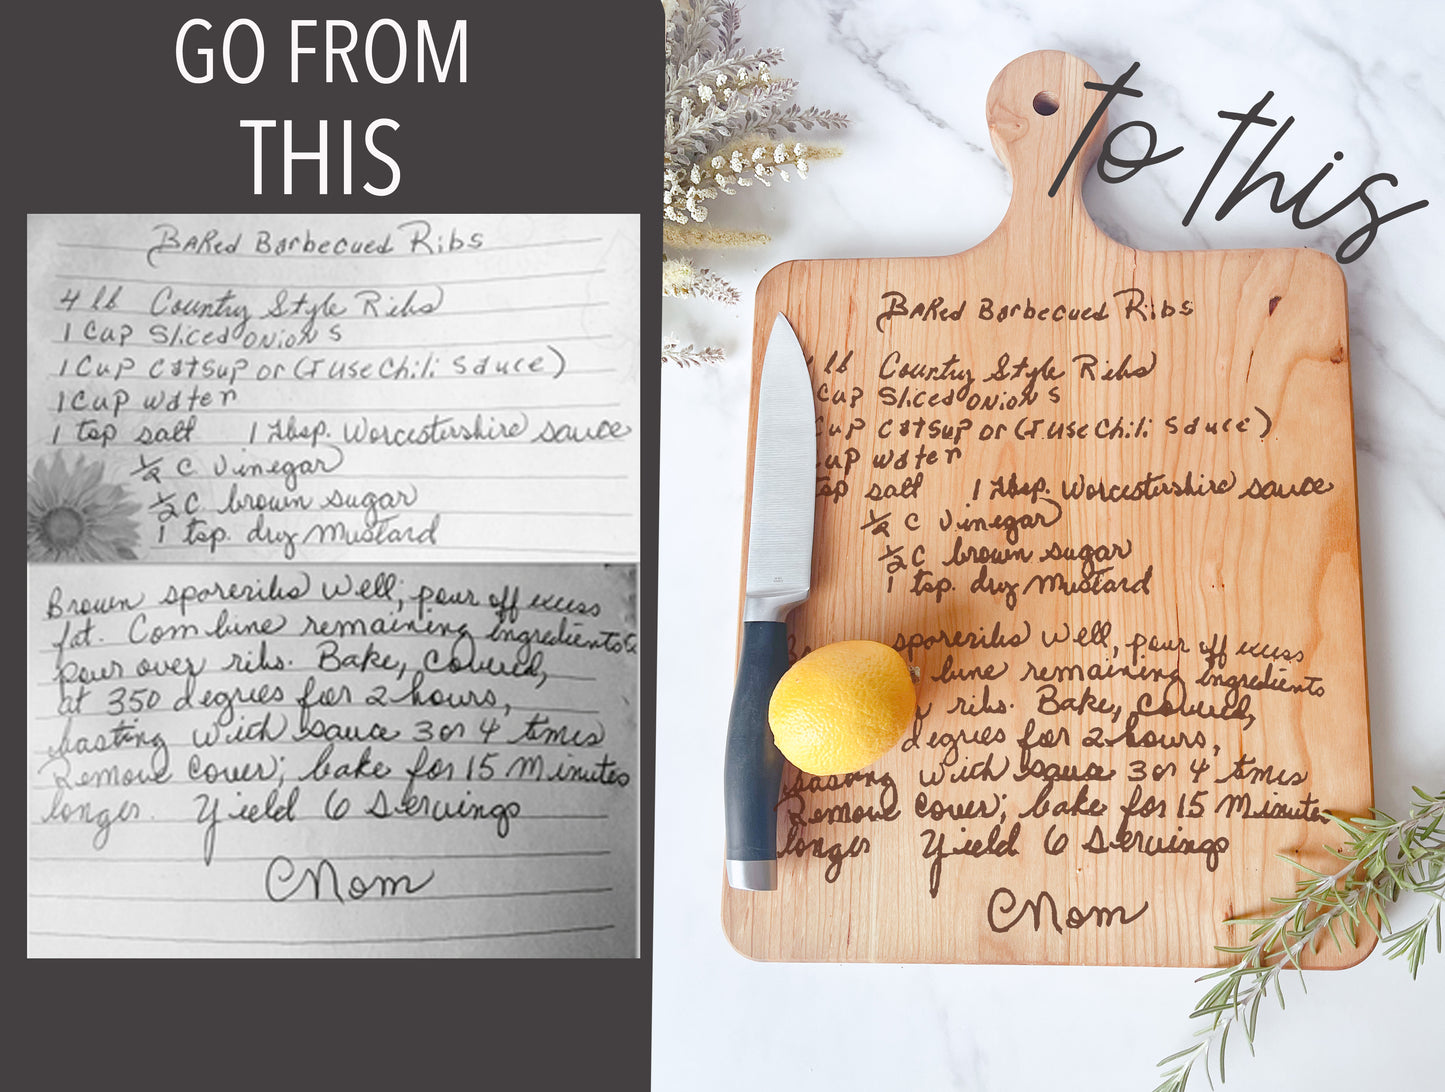 GO FROM
THIS
BARed Barbecued Ribs
4 lb Country Style Ribs
1 Cup Sliced ONiONS
1 Cup CatSup or (I use Chili Sauce)
1 Cup water
1 tsp salt 1 tbsp. Worcestershire sauce
1/2 C Vinegar
1/2 C brown sugar
1 tsp. dry Mustard
Brown spareribs well; pour off excess
fat. Combune remaining ingredients &
pour over ribs. Bake, Covered,
at 350 degrees for 2 hours,
basting with sauce 3 or 4 times
Remove Cover; bake for 15 Minutes
longer. Yield 6 Servings
Mom
to this
BARed Barbecued Ribs
lb Country Style Ribs
Cup Sliced ONiONS
Cup CatSup or (I use Chili Sauce)
up water
tsp salt 1 tbsp. Worcestershire sauce
1/2 C Vinegar
1/2 C brown sugar
1 tsp. dry Mustard
spareribs well, pour off excess
bune remaining ingredients
ribs. Bake, Covered,
degrees for 2 hours,
basting with sauce 3 or 4 times
Remove Cover; bake for 15 Minutes
longer Yield 6 Servings
Mom